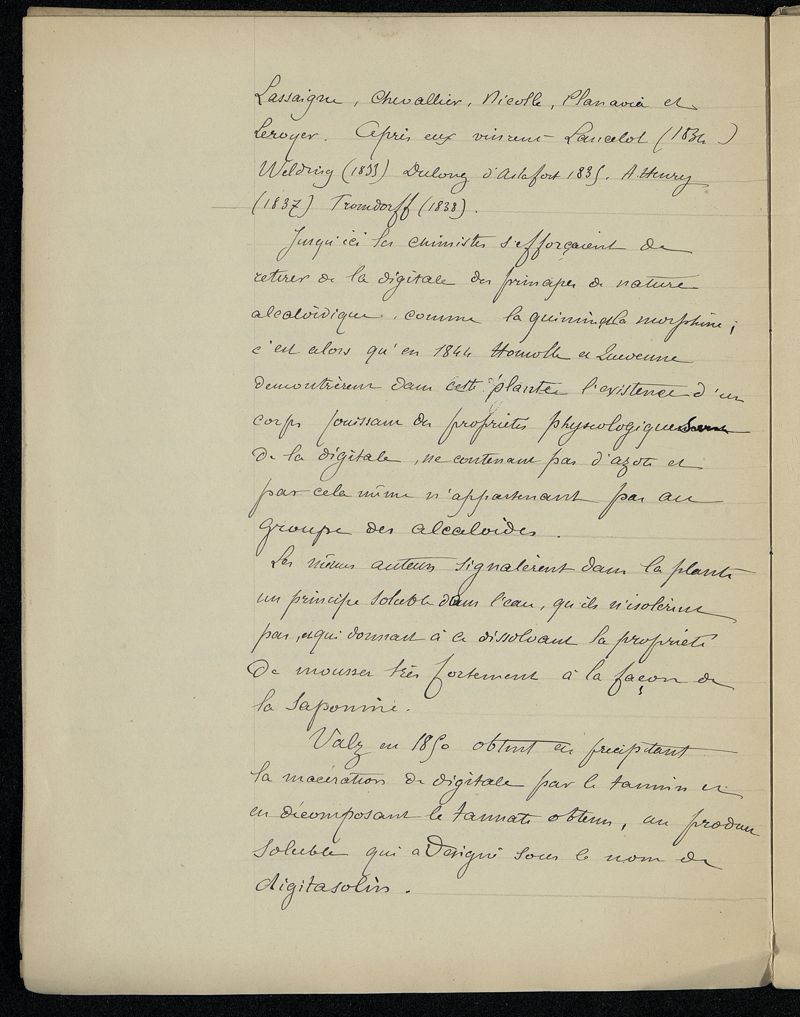 Lassaigne, Chevallier, Nicolle, Planavia et
Leroyer. Après eux vinrent Lancelot (1834)
Welding (1833) Dulong d'Astafort 1835. A Henry
(1837) Tromdorff (1838).
Jusqu'ici les chimistes s'efforçaient de
retirer de la digitale des principes de nature
alcaloïdique, comme la quinine, la morphine;
c'est alors qu'en 1844 Homolle et Quevenne
demontrèrent dans cette plante l'existence d'un
corps jouissant des propriétés physiologiques
de la digitale, ne contenant pas d'azote et
par cela même n'appartenant pas au
groupe des alcaloïdes.
Les mêmes auteurs signalèrent dans la plante
un principe soluble dans l'eau, qu'ils n'isolèrent
pas, et qui donnait à ce dissolvant la propriété
de mousser très fortement à la façon de
la saponine.
Valz en 1850 obtint en précipitant
la macération de digitale par le tannin et
en décomposant le tannate obtenu, un produit
soluble qui a désigné sous le nom de
digitasolin.